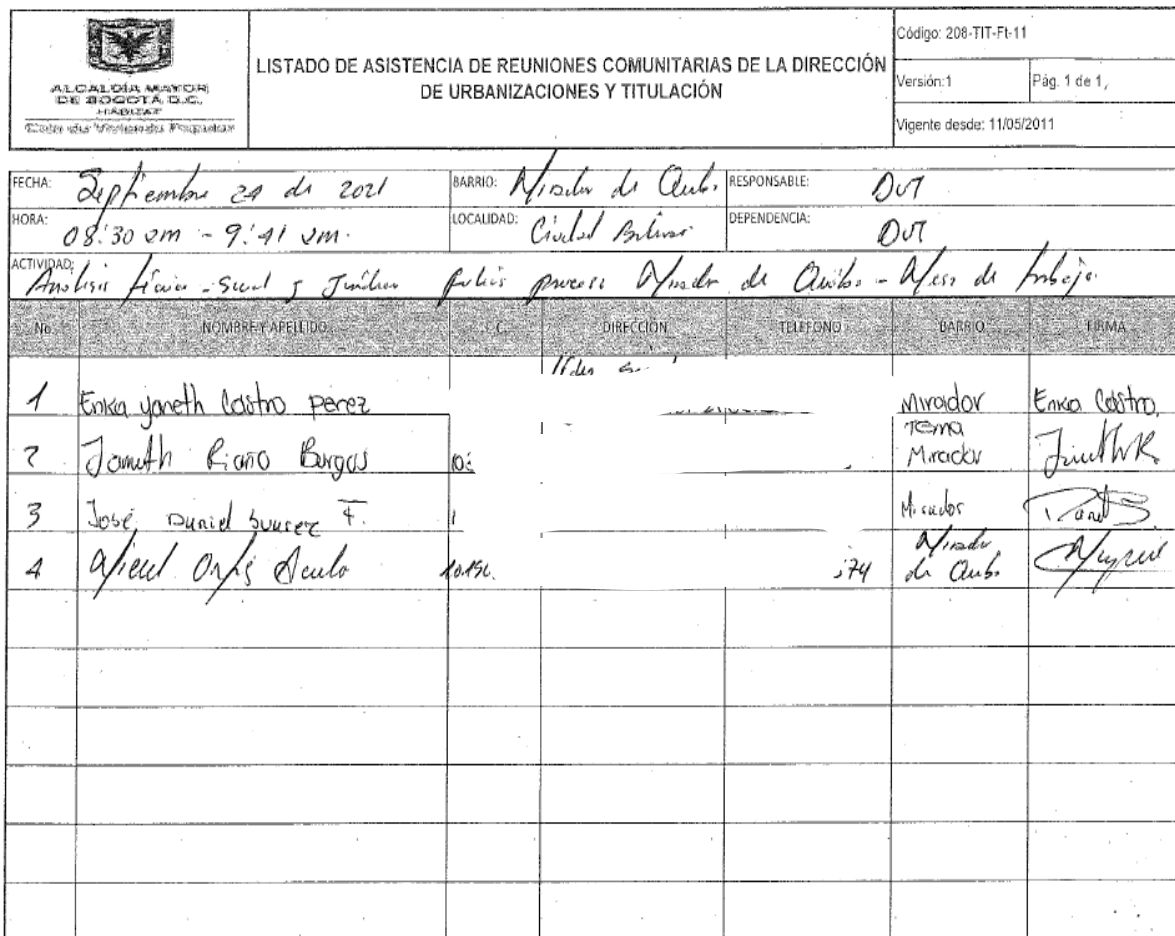 ALCALDÍA MAYOR
DE BOGOTÁ D.C.
HÁBITAT
Caja de Vivienda Popular
LISTADO DE ASISTENCIA DE REUNIONES COMUNITARIAS DE LA DIRECCIÓN
DE URBANIZACIONES Y TITULACIÓN
Código: 208-TIT-Ft-11
Versión:1 Pág. 1 de 1
Vigente desde: 11/05/2011
FECHA: Septiembre 29 de 2021 BARRIO: Mirador de RESPONSABLE: DUT
HORA: 08:30 am - 9:41 am. LOCALIDAD: Ciudad Bolivar DEPENDENCIA: DUT
ACTIVIDAD: Analisis - Social y Juridico predios proceso Mirador de - Mesa de trabajo.
No. NOMBRE Y APELLIDO C.C. DIRECCIÓN TELEFONO BARRIO FIRMA
1 Erika yaneth Castro perez Mirador Erika Castro
2 Janneth Riaño Burgos Mirador
3 José Daniel F. Mirador
4 Mirador de